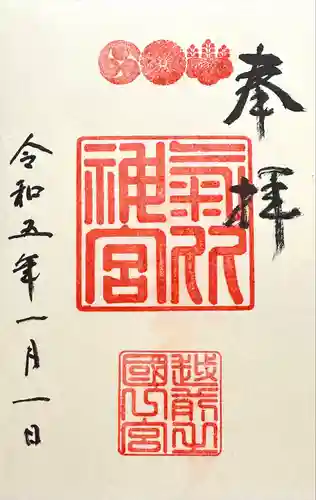 奉拝
氣比神宮
越前一宮
令和五年一月一日